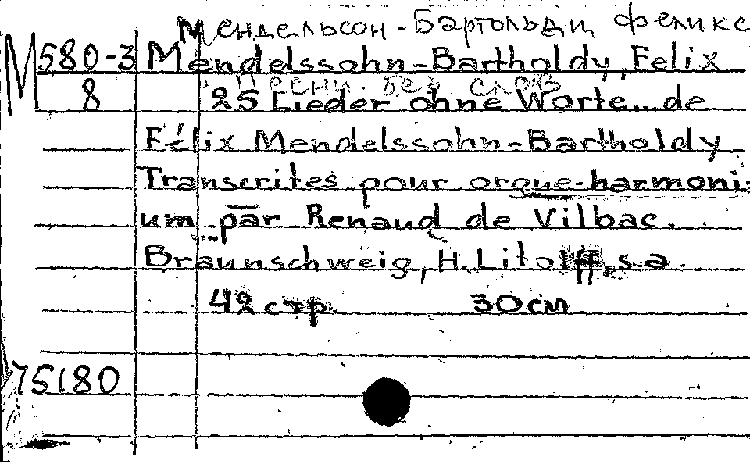 Мендельсон-Бартольди Феликс
М 580-3 Mendelssohn-Bartholdy, Felix
Песни без слов
8 25 Lieder ohne Worte.. de
Félix Mendelssohn-Bartholdy
Transcrites pour orgue-harmoni-
um par Renaud de Vilbac.
Braunschweig, H. Litolff, s.a.
42 стр 30 см
75180